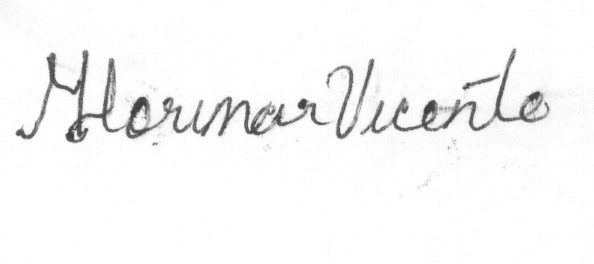 Florimar Vicente